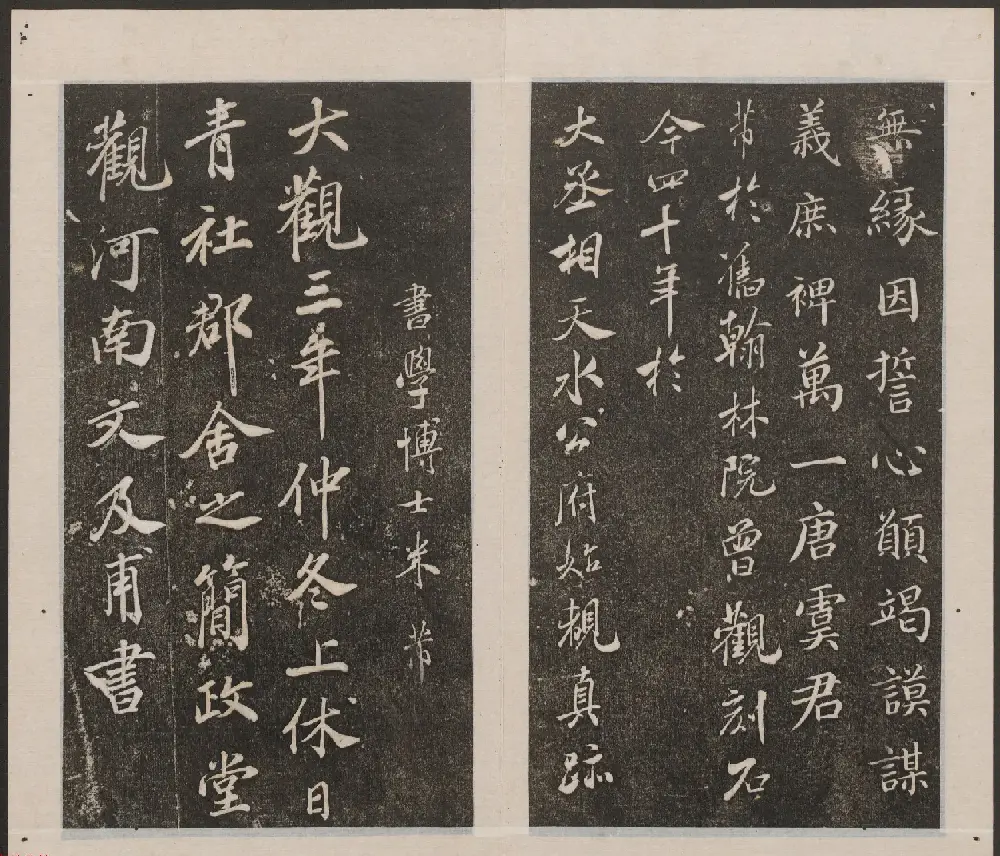 無緣因誓心願竭謨謀
義庶裨萬一唐虞君
芾於舊翰林院曾觀刻石
今四十年於
大丞相天水公府始覩真跡
書學博士米芾
大觀三年仲冬上休日
青社郡舍之簡政堂
觀河南文及甫書